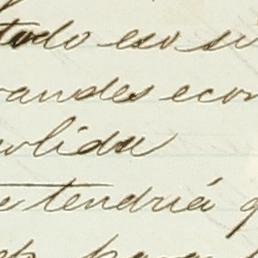 todo eso si
randes econ
olida
e tendriá q
para